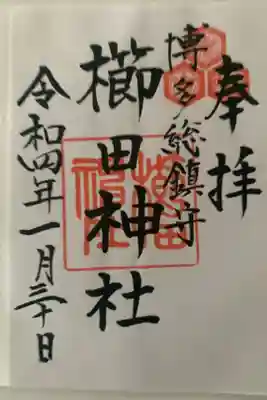 奉拝
博多総鎮守
櫛田神社
令和四年一月三十日